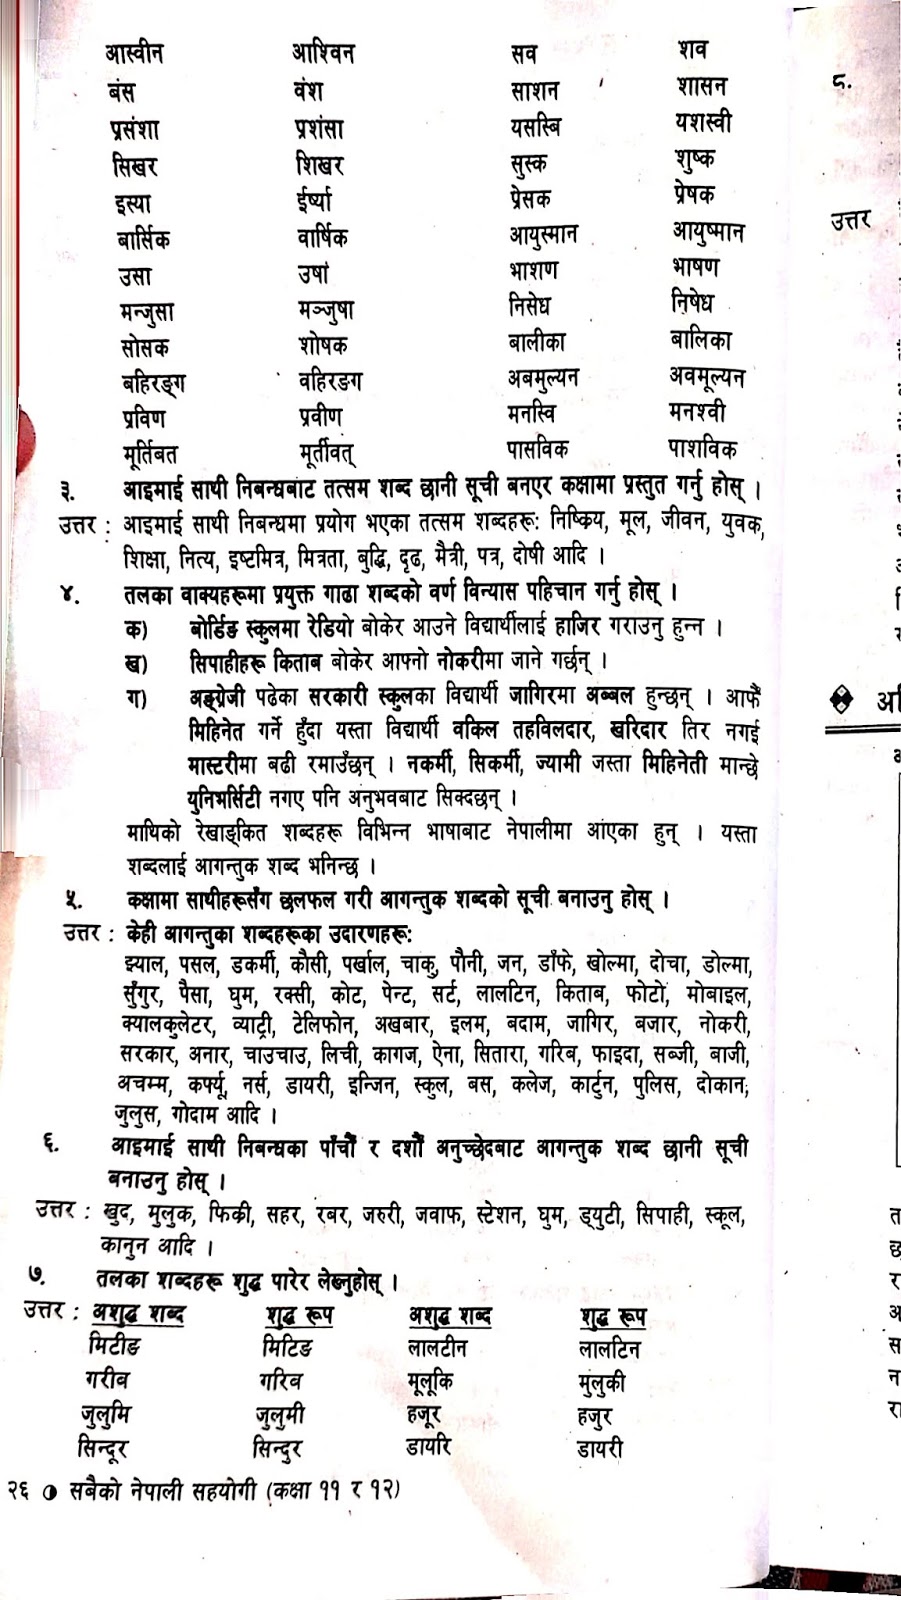 आस्वीन आश्विन सव शव
बंस वंश साशन शासन
प्रसंशा प्रशंसा यसस्बि यशस्वी
सिखर शिखर सुस्क शुष्क
इस्या ईर्ष्या प्रेसक प्रेषक
बार्सिक वार्षिक आयुस्मान आयुष्मान
उसा उषा भाशण भाषण
मन्जुसा मञ्जुषा निसेध निषेध
सोसक शोषक बालीका बालिका
बहिरङ्ग वहिरङग अबमुल्यन अवमूल्यन
प्रविण प्रवीण मनस्वि मनश्वी
मूर्तिबत मूर्तीवत् पासविक पाशविक
३. आइमाई साथी निबन्धबाट तत्सम शब्द छानी सूची बनएर कक्षामा प्रस्तुत गर्नु होस् ।
उत्तर : आइमाई साथी निबन्धमा प्रयोग भएका तत्सम शब्दहरू: निष्क्रिय, मूल, जीवन, युवक,
शिक्षा, नित्य, इष्टमित्र, मित्रता, बुद्धि, दृढ, मैत्री, पत्र, दोषी आदि ।
४. तलका वाक्यहरूमा प्रयुक्त गाढा शब्दको वर्ण विन्यास पहिचान गर्नु होस् ।
क) बोर्डिङ स्कुलमा रेडियो बोकेर आउने विद्यार्थीलाई हाजिर गराउनु हुन्न ।
ख) सिपाहीहरू किताब बोकेर आफ्नो नोकरीमा जाने गर्छन् ।
ग) अङ्ग्रेजी पढेका सरकारी स्कुलका विद्यार्थी जागिरमा अब्बल हुन्छन् । आफैँ
मिहिनेत गर्ने हुँदा यस्ता विद्यार्थी वकिल तहविलदार, खरिदार तिर नगई
मास्टरीमा बढी रमाउँछन् । नकर्मी, सिकर्मी, ज्यामी जस्ता मिहिनेती मान्छे
युनिभर्सिटी नगए पनि अनुभवबाट सिक्दछन् ।
माथिको रेखाङ्कित शब्दहरू विभिन्न भाषाबाट नेपालीमा आएका हुन् । यस्ता
शब्दलाई आगन्तुक शब्द भनिन्छ ।
५. कक्षामा साथीहरूसँग छलफल गरी आगन्तुक शब्दको सूची बनाउनु होस् ।
उत्तर : केही आगन्तुका शब्दहरूका उदारणहरू:
झ्याल, पसल, डकर्मी, कौसी, पर्खाल, चाकु, पौनी, जन, डाँफे, खोल्मा, दोचा, डोल्मा,
सुँगुर, पैसा, घुम, रक्सी, कोट, पेन्ट, सर्ट, लालटिन, किताब, फोटो, मोबाइल,
क्यालकुलेटर, व्याट्री, टेलिफोन, अखबार, इलम, बदाम, जागिर, बजार, नोकरी,
सरकार, अनार, चाउचाउ, लिची, कागज, ऐना, सितारा, गरिब, फाइदा, सब्जी, बाजी,
अचम्म, कर्फ्यू, नर्स, डायरी, इन्जिन, स्कुल, बस, कलेज, कार्टुन, पुलिस, दोकान,
जुलुस, गोदाम आदि ।
६. आइमाई साथी निबन्धका पाँचौँ र दशौँ अनुच्छेदबाट आगन्तुक शब्द छानी सूची
बनाउनु होस् ।
उत्तर : खुद, मुलुक, फिकी, सहर, रबर, जरुरी, जवाफ, स्टेशन, घुम, ड्युटी, सिपाही, स्कूल,
कानुन आदि ।
७. तलका शब्दहरू शुद्ध पारेर लेख्नुहोस् ।
उत्तर : अशुद्ध शब्द शुद्ध रूप अशुद्ध शब्द शुद्ध रूप
मिटीङ मिटिङ लालटीन लालटिन
गरीव गरिव मूलूकि मुलुकी
जुलुमि जुलुमी हजूर हजुर
सिन्दूर सिन्दुर डायरि डायरी
२६ सबैको नेपाली सहयोगी (कक्षा ११ र १२)
८.
उत्तर